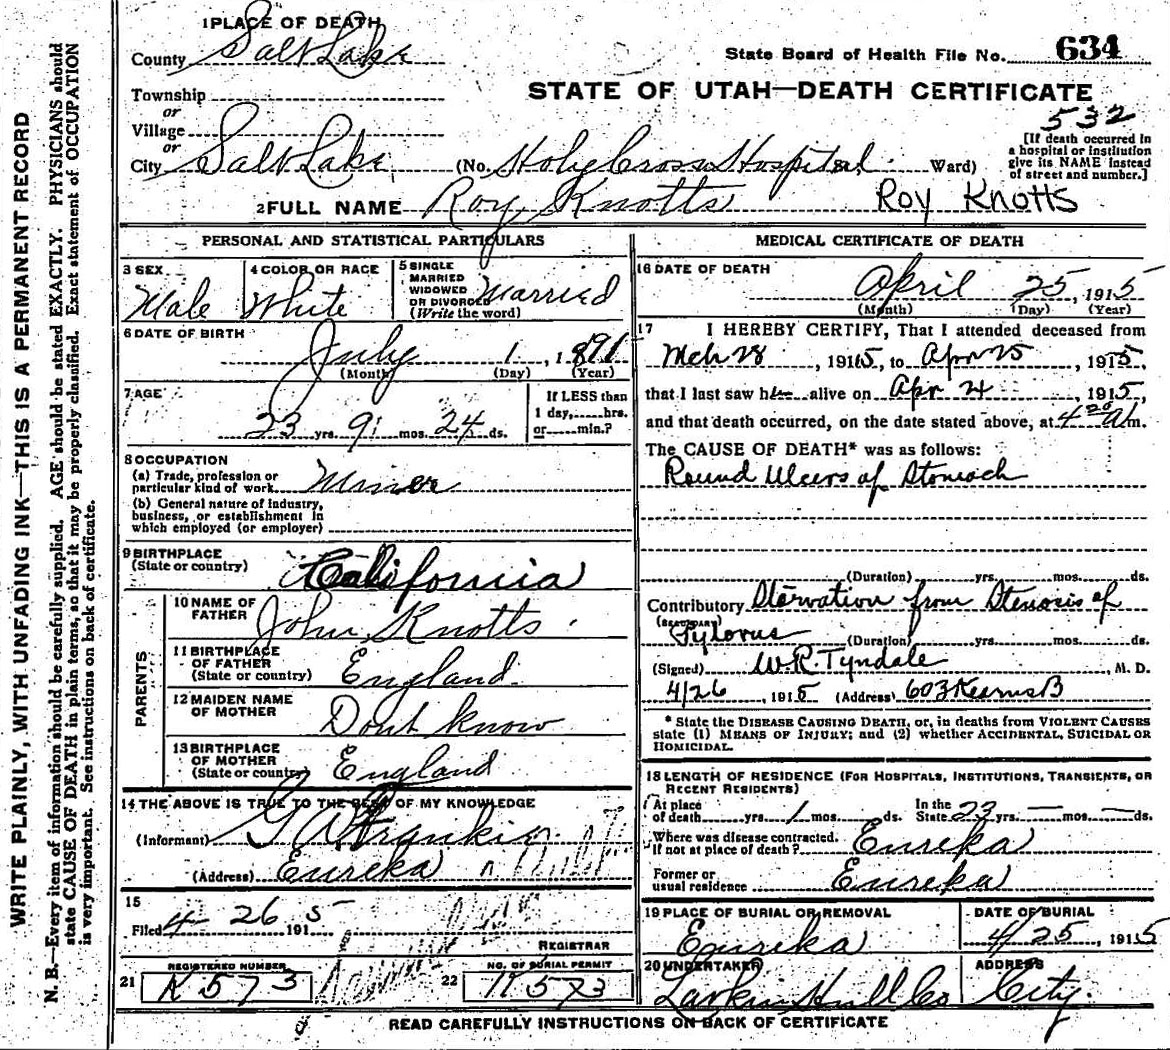 WRITE PLAINLY, WITH UNFADING INK—THIS IS A PERMANENT RECORD
N. B.—Every item of information should be carefully supplied. AGE should be stated EXACTLY. PHYSICIANS should
state CAUSE OF DEATH in plain terms, so that it may be properly classified. Exact statement of OCCUPATION
is very important. See instructions on back of certificate.
1 PLACE OF DEATH
County Salt Lake
State Board of Health File No. 634
STATE OF UTAH—DEATH CERTIFICATE
532
Township
or
Village
or
City Salt Lake (No. Holy Cross Hospital Ward)
[If death occurred in
a hospital or institution
give its NAME instead
of street and number.]
2 FULL NAME Roy Knotts Roy Knotts
PERSONAL AND STATISTICAL PARTICULARS
3 SEX Male
4 COLOR OR RACE White
5 SINGLE
MARRIED
WIDOWED
OR DIVORCED
(Write the word) Married
6 DATE OF BIRTH
July 1, 1891
(Month) (Day) (Year)
7 AGE
23 yrs. 9 mos. 24 ds.
If LESS than
1 day,.....hrs.
or.....min.?
8 OCCUPATION
(a) Trade, profession or
particular kind of work Miner
(b) General nature of industry,
business, or establishment in
which employed (or employer)
9 BIRTHPLACE
(State or country) California
PARENTS
10 NAME OF
FATHER John Knotts
11 BIRTHPLACE
OF FATHER
(State or country) England
12 MAIDEN NAME
OF MOTHER Dont know
13 BIRTHPLACE
OF MOTHER
(State or country) England
14 THE ABOVE IS TRUE TO THE BEST OF MY KNOWLEDGE
(Informant) G W
(Address) Eureka
15
Filed 4 26 1915
REGISTRAR
21 REGISTERED NUMBER
K573
22 NO. OF BURIAL PERMIT
K573
MEDICAL CERTIFICATE OF DEATH
16 DATE OF DEATH
April 25, 1915
(Month) (Day) (Year)
17 I HEREBY CERTIFY, That I attended deceased from
Mch 28, 1915, to Apr 25, 1915,
that I last saw him alive on Apr 24, 1915,
and that death occurred, on the date stated above, at 4 20 Am.
The CAUSE OF DEATH* was as follows:
Round Ulcers of Stomach
(Duration) yrs. mos. ds.
Contributory Starvation from Stenosis of
(SECONDARY) Pylorus (Duration) yrs. mos. ds.
(Signed) W.R. Tyndale, M. D.
4/26, 1915 (Address) 603 Kearns B
* State the DISEASE CAUSING DEATH, or, in deaths from VIOLENT CAUSES
state (1) MEANS OF INJURY; and (2) whether ACCIDENTAL, SUICIDAL OR
HOMICIDAL.
18 LENGTH OF RESIDENCE (FOR HOSPITALS, INSTITUTIONS, TRANSIENTS, OR
RECENT RESIDENTS)
At place
of death yrs. 1 mos. ds. In the
State 23 yrs. — mos. — ds.
Where was disease contracted.
If not at place of death? Eureka
Former or
usual residence Eureka
19 PLACE OF BURIAL OR REMOVAL
Eureka
DATE OF BURIAL
4/25, 1915
20 UNDERTAKER
Larkin Hull Co
ADDRESS
City.
READ CAREFULLY INSTRUCTIONS ON BACK OF CERTIFICATE